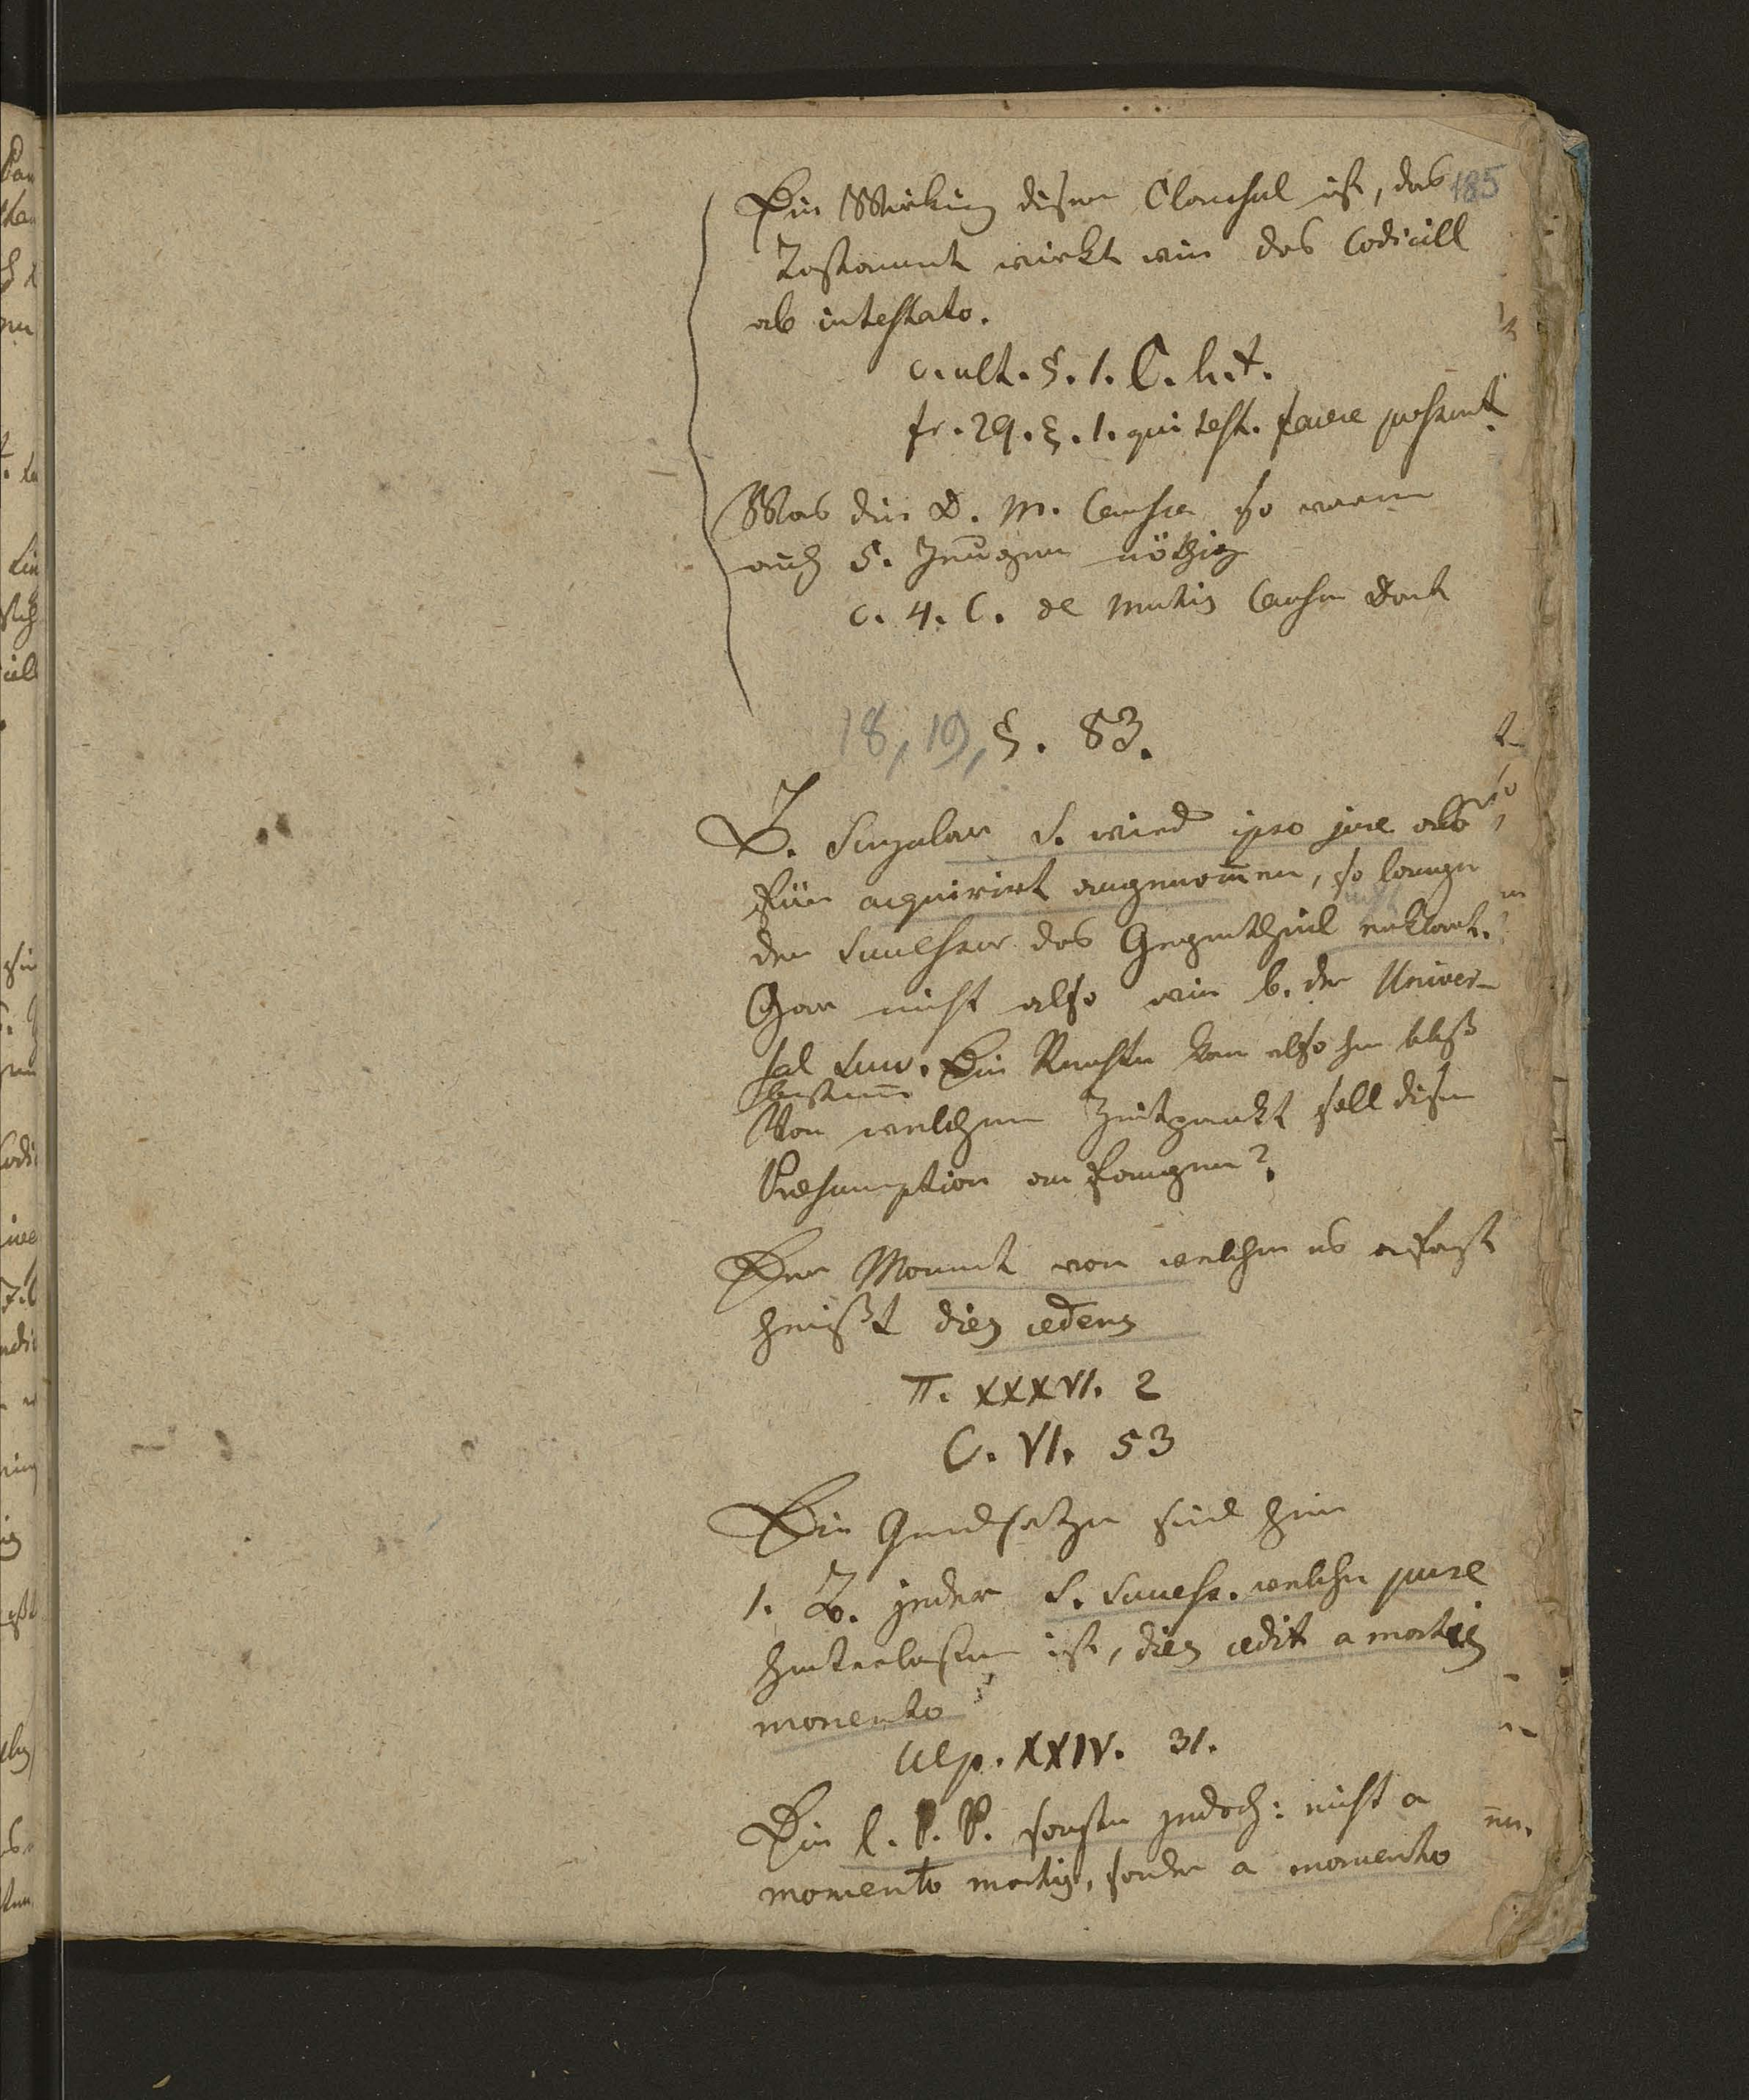 185
Die Wirkung diser Clausul ist, das
Testament wirkt wie das Codicill
ab intestato.
c. ult. §. 1. C. h. t.
fr. 29. §. 1. qui test. facere possunt.
Was die D. M. Causa so wenn
auch 5. Zeugen nöthig
c. 4. C. de Mutis Causa Dont
18, 19, §. 83.
B. Singular S. wird ipso jure als
für acquirirt angenom̅en, so lange
der Successor das Gegentheil erklärt.
nicht
Gar nicht also wie b. der Univer-
sal Succ. Die Rechte kan also bloß
Von welchem Zeitpunkt soll dise
Præsumption anfangen?
Der Moment von welchem es anfangt
heißt dies cedens
π. XXXVI. 2
C. VI. 53
Die Grundsetze sind hier
1. B. jeder S. Success. welche pure
hinterlassen ist, dies cedit a mortis
momento
Ulp. XXIV. 31.
Die l. P. P. sagte jedoch: nicht a
momento mortis, sonder a momento